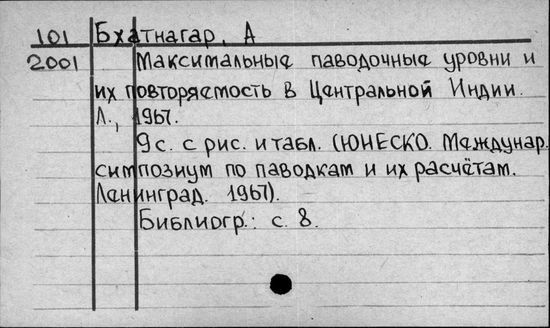 101 Бхатнагар, А
2001 Максимальные паводочные уровни и
их повторяемость в Центральной Индии.
Л., 1967.
9с. с рис. и табл. (ЮНЕСКО. Междунар.
симпозиум по паводкам и их расчётам.
Ленинград. 1967).
Библиогр.: с. 8.